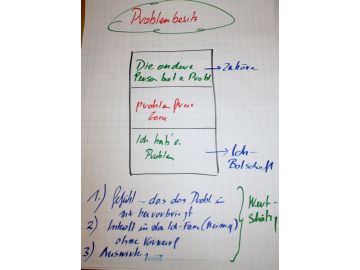 Problembesitz
Die andere → Zuhören
Person hat e. Probl
problemfreie
Zone
Ich hab' e. → Ich-
Problem Botschaft
1.) Gefühl ... das das Probl. in
mir hervorbringt
2) Inhalt in der Ich-Form (Meinung)
ohne Vorwurf
3) Auswirkung
Wert-
schätzg